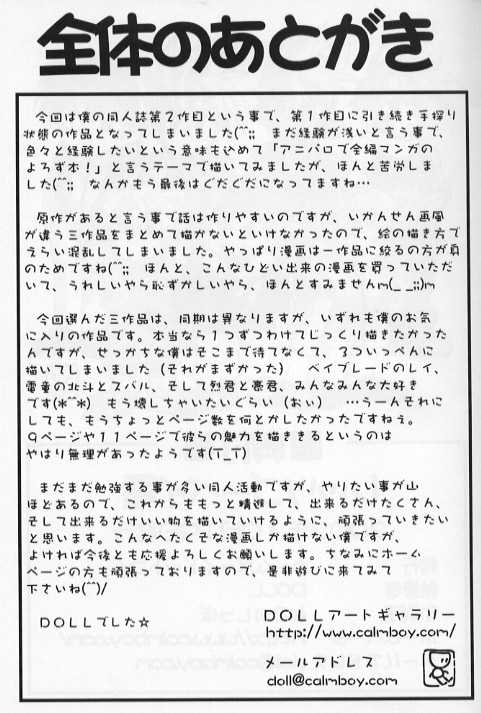 全体のあとがき
今回は僕の同人誌第2作目という事で、第1作目に引き続き手探り
状態の作品となってしまいました(^^;; まだ経験が浅いと言う事で、
色々と経験したいという意味も込めて「アニパロで全編マンガの
よろず本!」と言うテーマで描いてみましたが、ほんと苦労しま
した(^^;; なんかもう最後はぐだぐだになってますね…
原作があると言う事で話は作りやすいのですが、いかんせん画風
が違う三作品をまとめて描かないといけなかったので、絵の描き方で
えらい混乱してしまいました。やっぱり漫画は一作品に絞るの方が真
のためですね(^^;; ほんと、こんなひどい出来の漫画を買っていただ
いて、うれしいやら恥ずかしいやら、ほんとすみませんm(_ _;;)m
今回選んだ三作品は、同期は異なりますが、いずれも僕のお気
に入りの作品です。本当なら1つずつわけてじっくり描きたかった
んですが、せっかちな僕はそこまで待てなくて、3ついっぺんに
描いてしまいました(それがまずかった) ベイブレードのレイ、
電童の北斗とスバル、そして烈君と豪君、みんなみんな大好き
です(*^^*) もう壊しちゃいたいぐらい(おぃ) …うーんそれに
しても、もうちょっとページ数を何とかしたかったですねぇ。
9ページや11ページで彼らの魅力を描ききるというのは
やはり無理があったようです(T_T)
まだまだ勉強する事が多い同人活動ですが、やりたい事が山
ほどあるので、これからももっと精進して、出来るだけたくさん、
そして出来るだけいい物を描いていけるように、頑張っていきたい
と思います。こんなへたくそな漫画しか描けない僕ですが、
よければ今後とも応援よろしくお願いします。ちなみにホーム
ページの方も頑張っておりますので、是非遊びに来てみて
下さいね(^^)/
DOLLでした☆
DOLLアートギャラリー
http://www.calmboy.com/
メールアドレス
doll@calmboy.com